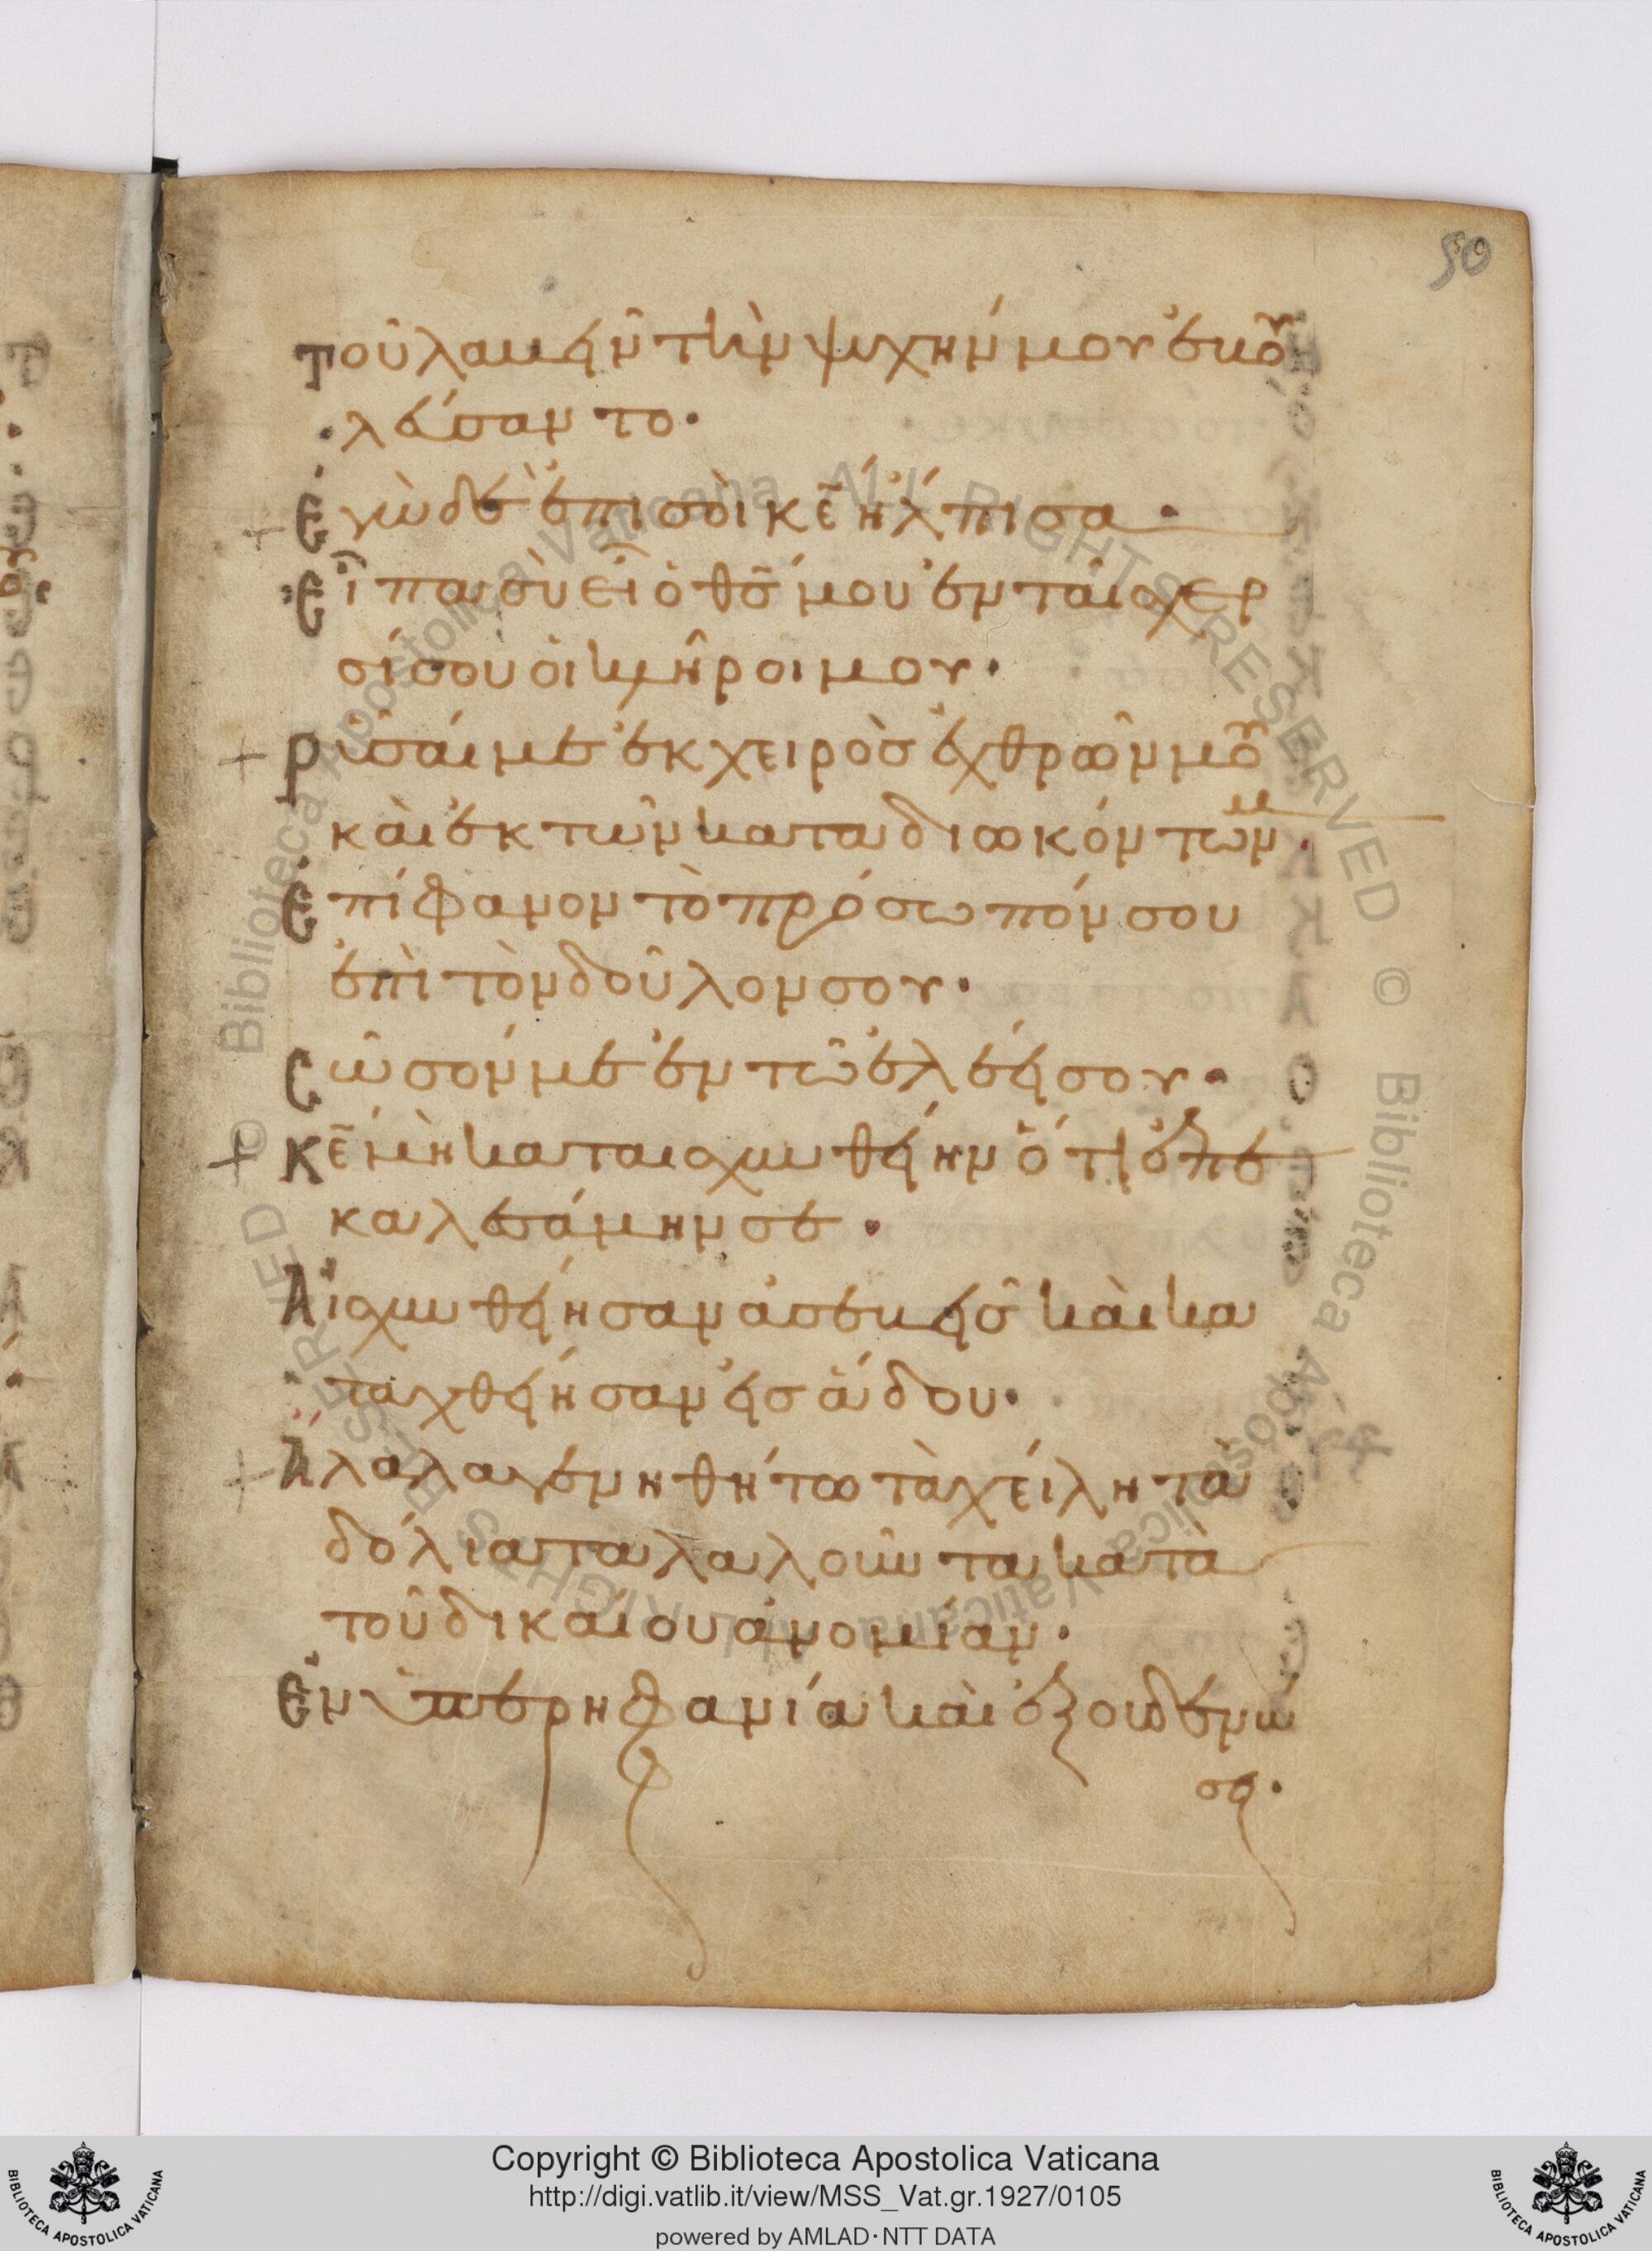 50
τοῦ λαβεῖν τὴν ψυχήν μου ἐβου
λεύσαντο·
Ἐγὼ δὲ ἐπὶ σοὶ κ̅ε̅ ἤλπισα·
Εἶπα σὺ εἶ ὁ θ̅ς̅ μου ἐν ταῖς χερ
σί σου οἱ κλῆροι μου·
Ρῦσαί με ἐκ χειρὸς ἐχθρῶν μου
καὶ ἐκ τῶν καταδιωκόντων με·
Ἐπίφανον τὸ πρόσωπόν σου
ἐπὶ τὸν δοῦλον σου·
Σῶσόν με ἐν τῶ ἐλέει σου·
Κ̅ε̅ μὴ καταισχυνθείην ὅτι ἐπε
καλεσάμην σε·
Αἰσχυνθείησαν ἀσεβεῖς καὶ κα
ταχθείησαν εἰς ἅδου·
Ἄλαλα γενηθήτω τὰ χείλη τὰ
δόλια τὰ λαλοῦντα κατὰ
τοῦ δικαίου ἀνομίαν·
Ἐν ὑπερηφανία καὶ ἐξουδενώ
σει·
Copyright © Biblioteca Apostolica Vaticana
http://digi.vatlib.it/view/MSS_Vat.gr.1927/0105
powered by AMLAD·NTT DATA
BIBLIOTECA APOSTOLICA VATICANA
BIBLIOTECA APOSTOLICA VATICANA